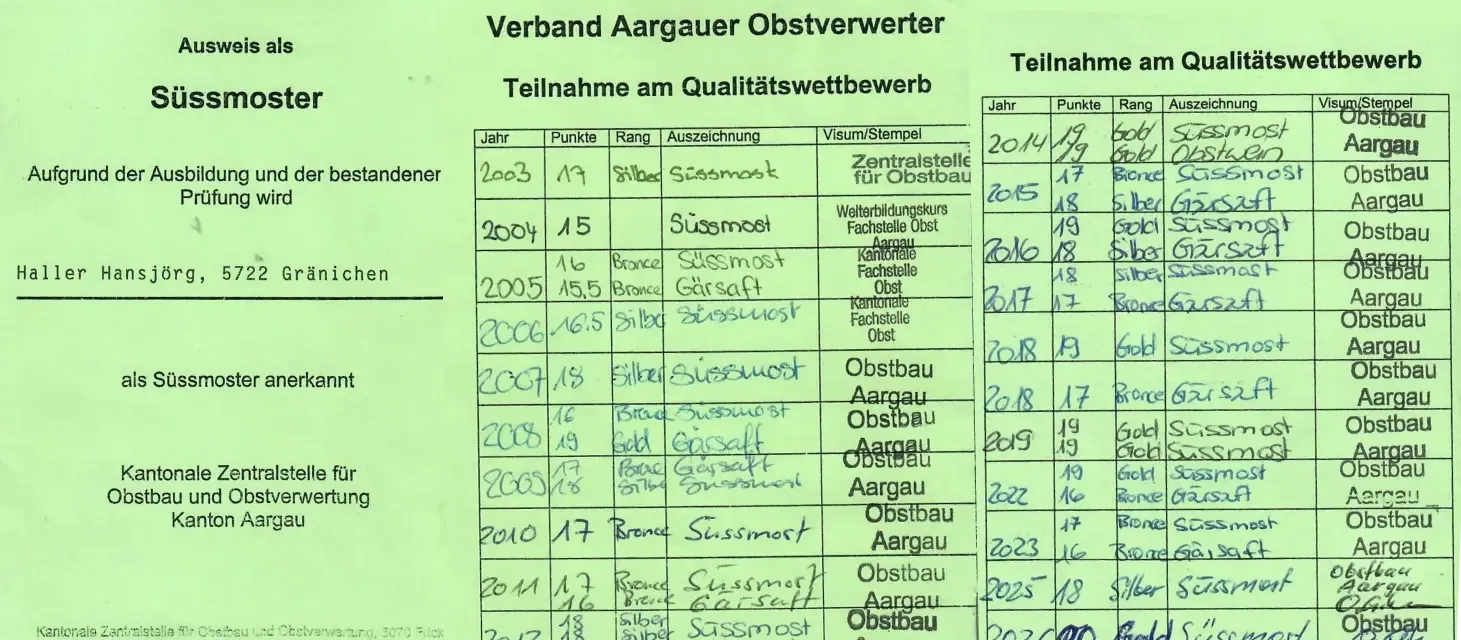 Ausweis als
Süssmoster
Aufgrund der Ausbildung und der bestandener
Prüfung wird
Haller Hansjörg, 5722 Gränichen
als Süssmoster anerkannt
Kantonale Zentralstelle für
Obstbau und Obstverwertung
Kanton Aargau
Kantonale Zentralstelle für Obstbau und Obstverwertung, 5070 Frick
Verband Aargauer Obstverwerter
Teilnahme am Qualitätswettbewerb
Jahr Punkte Rang Auszeichnung Visum/Stempel
2003 17 Silber Süssmost Zentralstelle
für Obstbau
2004 15 Süssmost Weiterbildungskurs
Fachstelle Obst
Aargau
16 Bronce Süssmost Kantonale
2005 15,5 Bronce Gärsaft Fachstelle
Obst
2006 16.5 Silbe Süssmost Kantonale
Fachstelle
Obst
2007 18 Silber Süssmost Obstbau
Aargau
2008 16 Bronce Süssmost Obstbau
19 Gold Gärsaft Aargau
2009 17 Bronce Gärsaft Obstbau
18 Silbe Süssmost Aargau
2010 17 Bronce Süssmost Obstbau
Aargau
2011 17 Bronce Süssmost Obstbau
16 Bronce Gärsaft Aargau
18 Silber Süssmost Obstbau
18 Silber
Teilnahme am Qualitätswettbewerb
Jahr Punkte Rang Auszeichnung Visum/Stempel
2014 19 Gold Süssmost Obstbau
19 Gold Obstwein Aargau
2015 17 Bronce Süssmost Obstbau
18 Silber Gärsaft Aargau
19 Gold Süssmost Obstbau
2016 18 Silber Gärsaft Aargau
18 Silber Süssmost Obstbau
2017 17 Bronce Gärsaft Aargau
2018 19 Gold Süssmost Obstbau
Aargau
2018 17 Bronce Gärsaft Obstbau
Aargau
2019 19 Gold Süssmost Obstbau
19 Gold Süssmost Aargau
19 Gold Süssmost Obstbau
2022 16 Bronce Gärsaft Aargau
17 Bronce Süssmost Obstbau
2023 16 Bronce Gärsaft Aargau
2025 18 Silber Süssmost Obstbau
Aargau
Gold Süssmost Obstbau